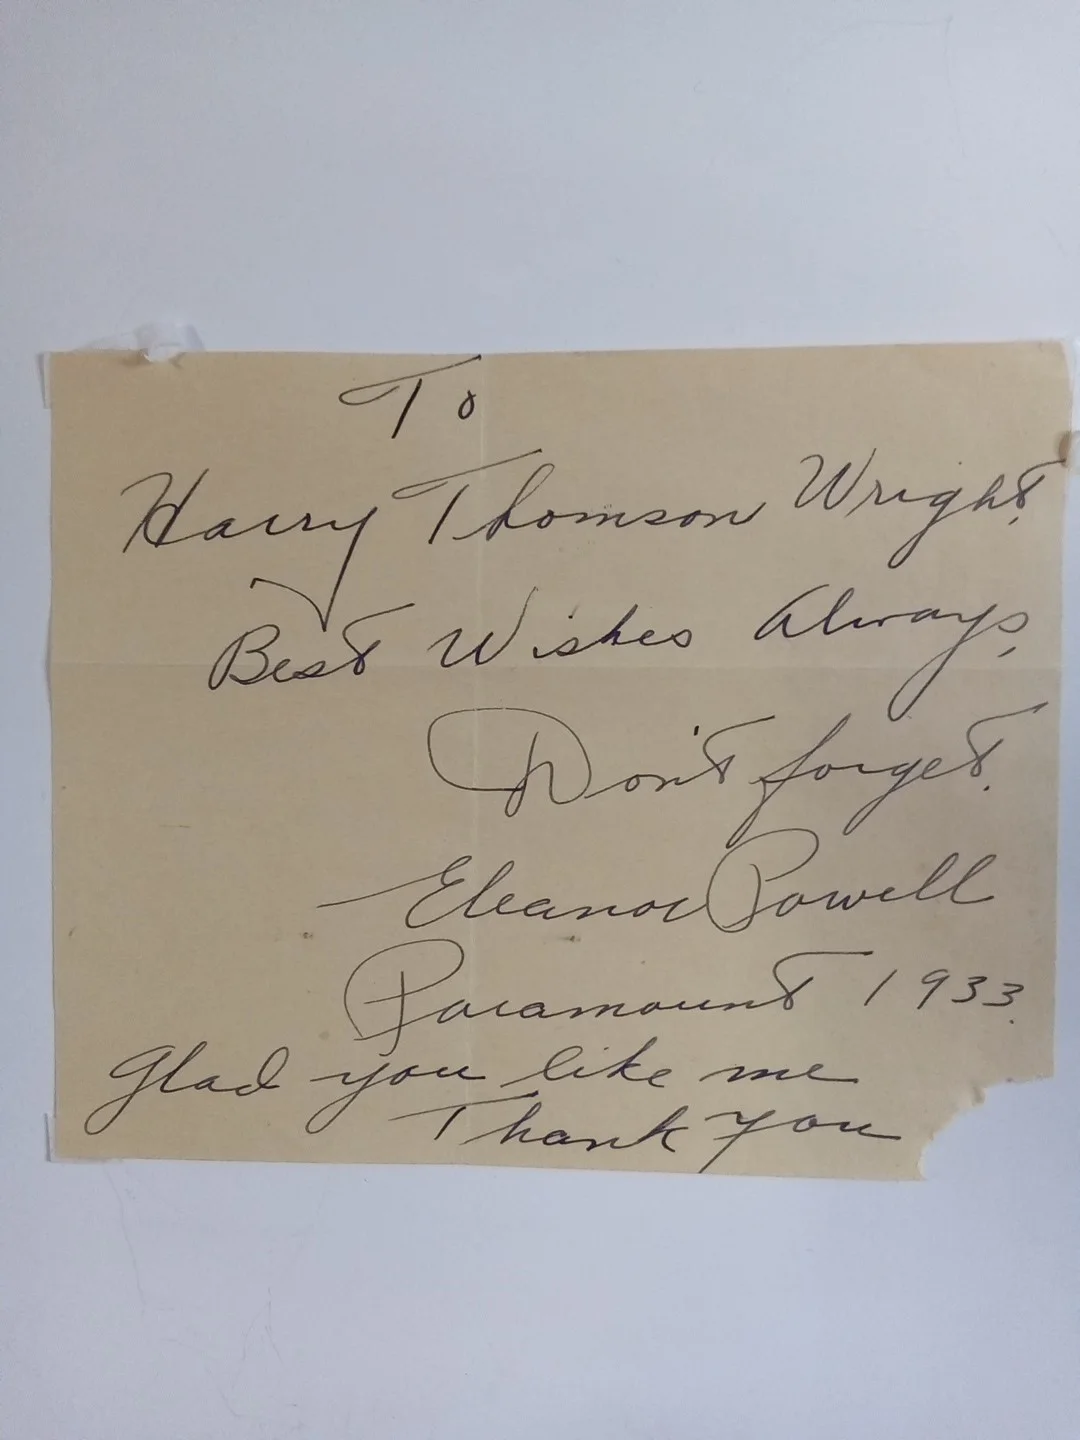 To
Harry Thomson Wright,
Best Wishes Always,
Don't forget.
Eleanor Powell
Paramount 1933.
Glad you like me
Thank you